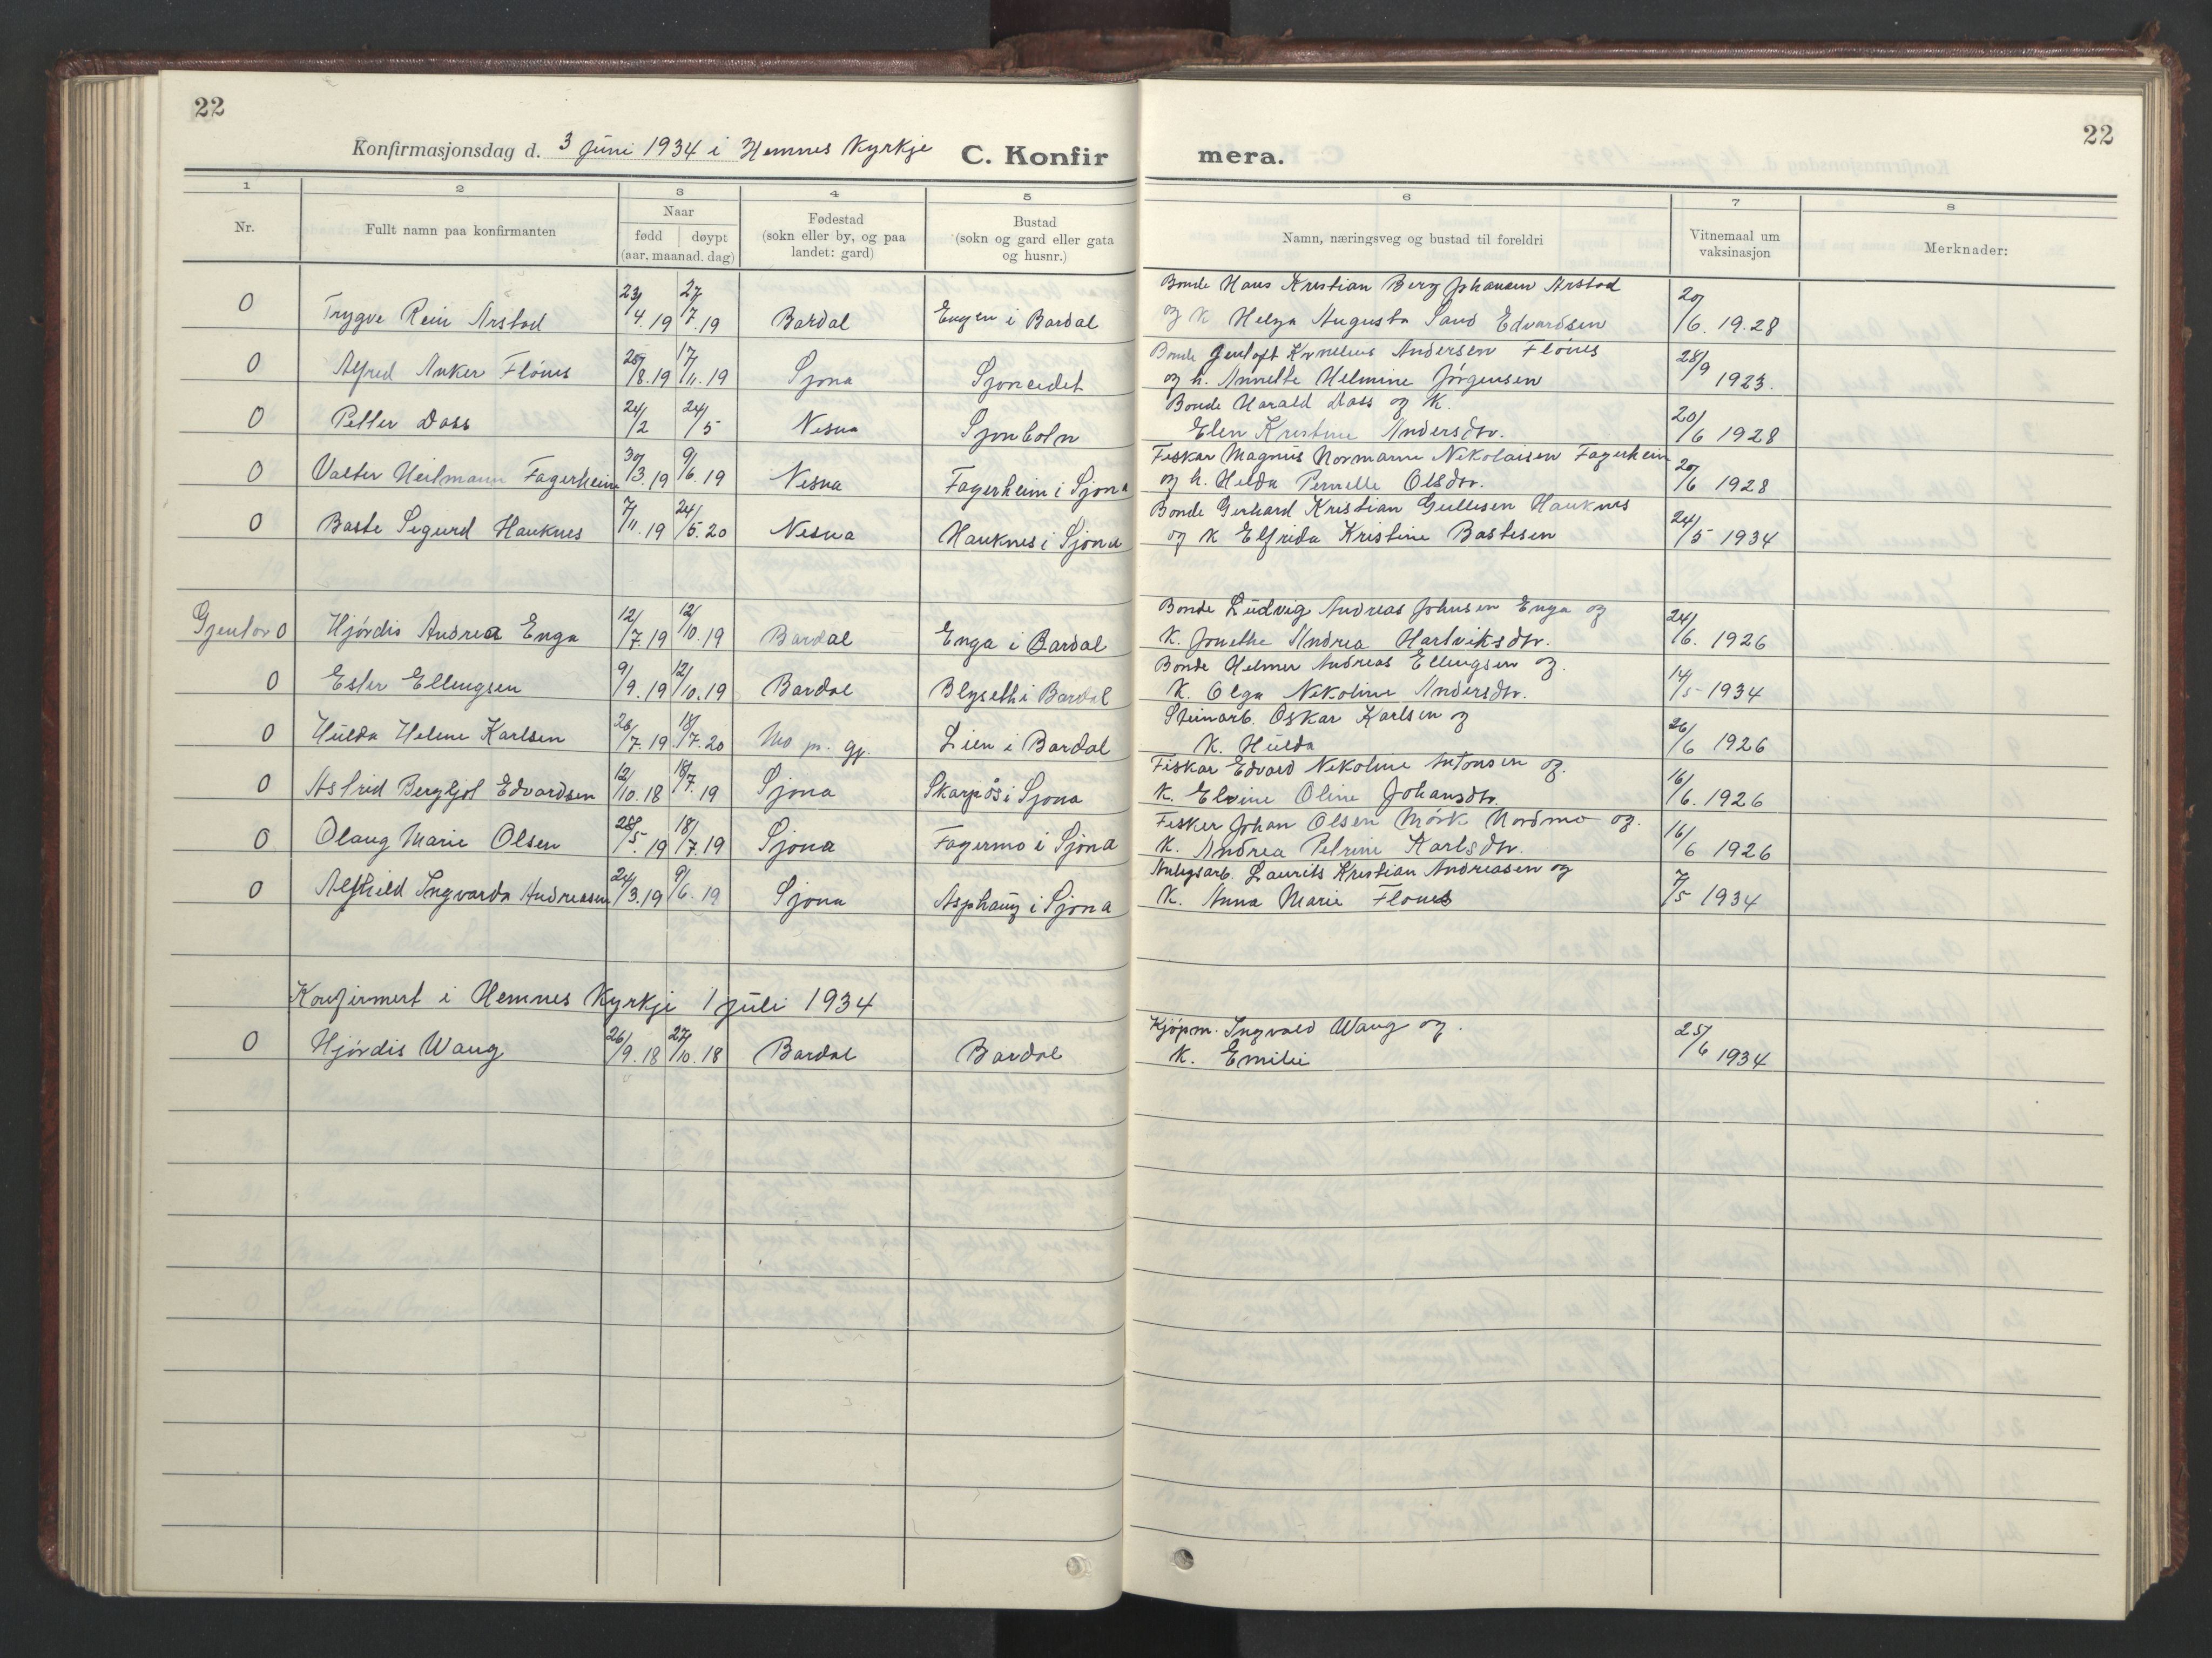 22
22
Konfirmasjonsdag d. 3 Juni 1934 i Hemnes Kyrkje
C. Konfirmera.
1 2 3 4 5 6 7 8
Nr.
Fullt namn paa konfirmanten
Naar
fødd døypt
(aar, maanad. dag)
Fødestad
(sokn eller by, og paa
landet: gard)
Bustad
(sokn og gard eller gata
og husnr.)
Namn, næringsveg og bustad til foreldri
Vitnemaal um
vaksinasjon
Merknader:
0 Trygve Rein Årstad 23/4.19 27/7.19 Bardal Engen i Bardal Bonde Hans Kristian Berg Johansen Årstad
og K Helga Augusta Sand Edvardsen 20/6. 19.28
0 Alfred Anker Flónes 20/8.19 17/11.19 Sjona Sjoneidet Bonde Kornelius Andersen Flónes
og h. Annette Helmine Jórgensen 28/9 1923.
0 Petter Dass 24/2 24/5 Nesna Sjonbotn Bonde Harald Dass og K.
Elen Kristine Andersdtr. 20/6 1928
0 Valter Heilmann Fagerheim 30/3.19 9/6.19 Nesna Fagerheim i Sjona Fiskar Magnus Normann Nikolaisen Fagerheim
og h. Helda Pernelle Olsdtr. 20/6 1928
0 Baste Sigurd Hauknes 7/11.19 24/5.20 Nesna Hauknes i Sjona Bonde Gerhard Kristian Gullesen Hauknes
og K Elfrida Kristine Bastesen 24/5 1934
Gjentor 0 Hjórdis Andrea Enga 12/7.19 12/10.19 Bardal Enga i Bardal Bonde Ludvig Andreas Johnsen Enga og
K. Jonethe Andrea Hartviksdtr. 24/6. 1926
0 Ester Ellingsen 9/9.19 12/10.19 Bardal Blyseth i Bardal Bonde Helmer Andreas Ellingsen og.
K. Olga Nikoline Andersdtr. 14/5 1934
0 Hulda Helene Karlsen 26/7.19 18/7.20 Mo p. gj. Lien i Bardal Steinarb. Oskar Karlsen og
K. Hulda 26/6 1926
0 Astrid Bergljot Edvardsen 12/10.18 18/7.19 Sjona Skarpås i Sjona Fiskar Edvard Nikoline Antonsen og.
K. Elvine Oline Johansdtr. 16/6. 1926
0 Olaug Marie Olsen 28/5.19 18/7.19 Sjona Fagermo i Sjona Fisker Johan Olsen Mórk Nordmo og.
K. Andrea Petrine Karlsdtr. 16/6 1926
0 Alfhild Ingvarda Andreasen 24/3.19 9/6.19 Sjona Asphaug i Sjona Anlegsarb. Laurits Kristian Andreasen og
K. Anna Marie Flones 7/5 1934
Konfirmert i Hemnes Kyrkje 1 juli 1934
0 Hjórdis Waag 26/9.18 27/10.18 Bardal Bardal Kjópm. Ingvald Waag og.
K. Emilie 25/6 1934